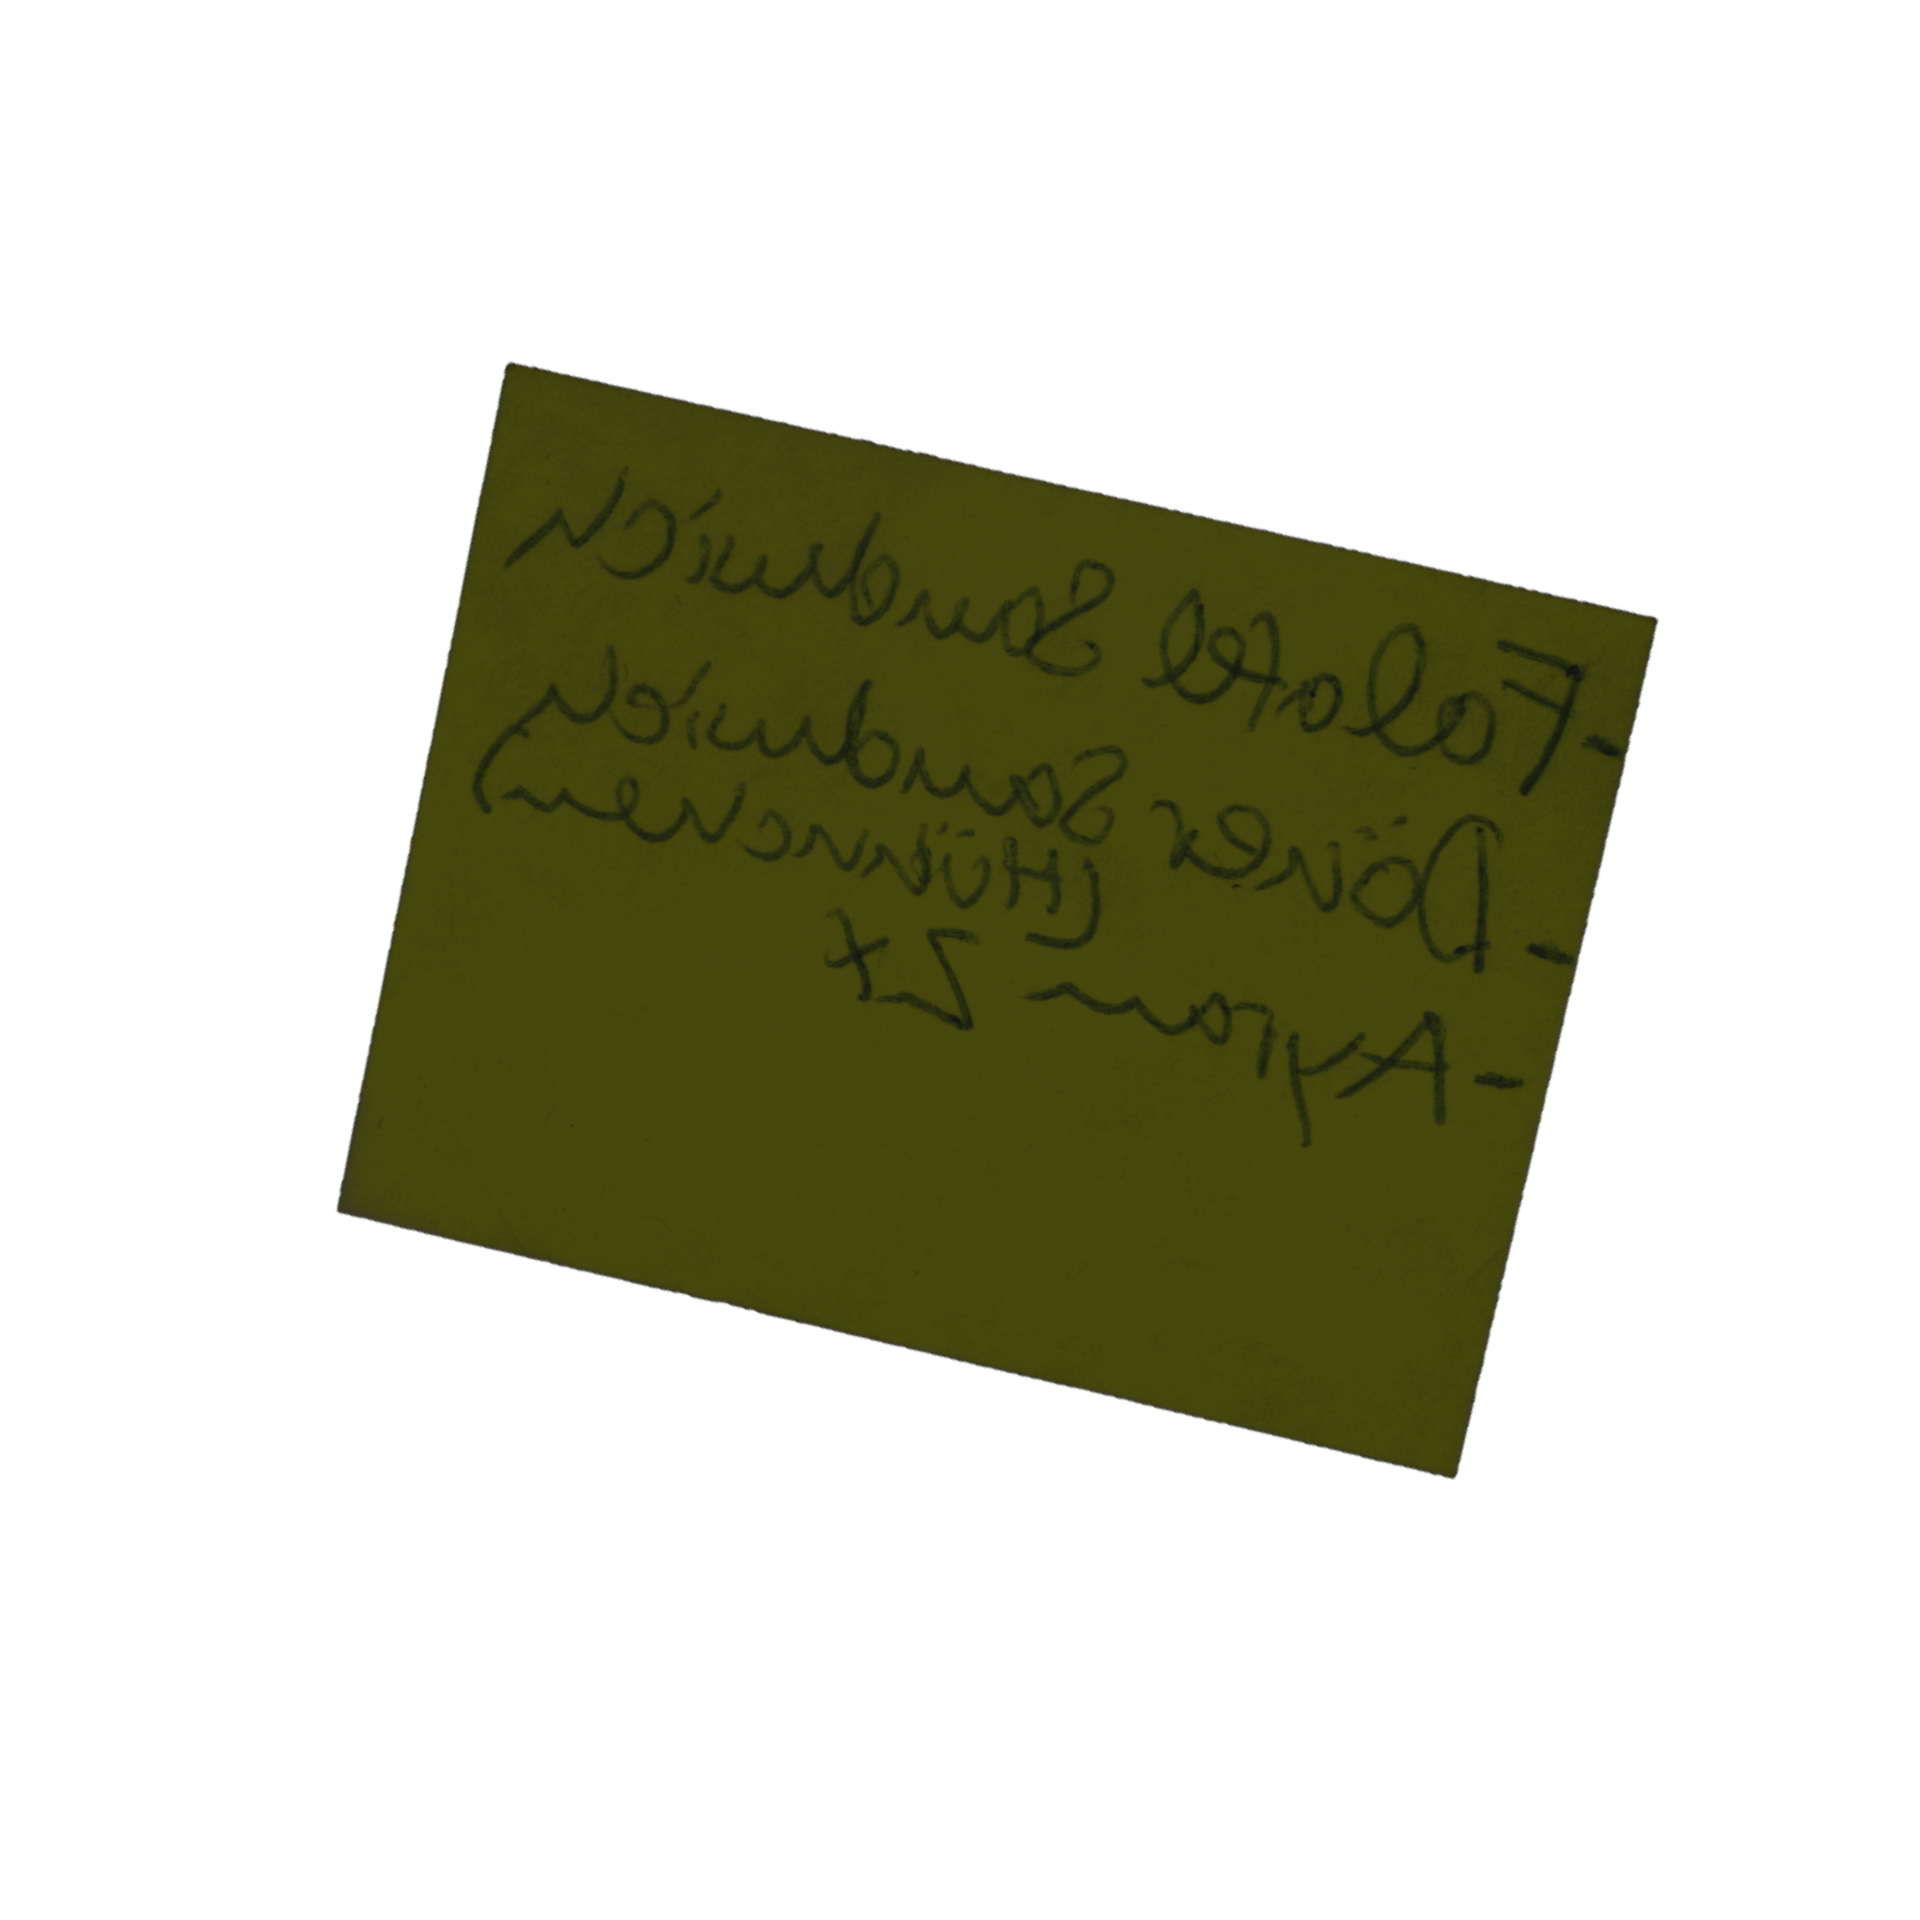 - Falafel Sandwich
- Döner Sandwich
(Hünrchen)
- Ayran 2x